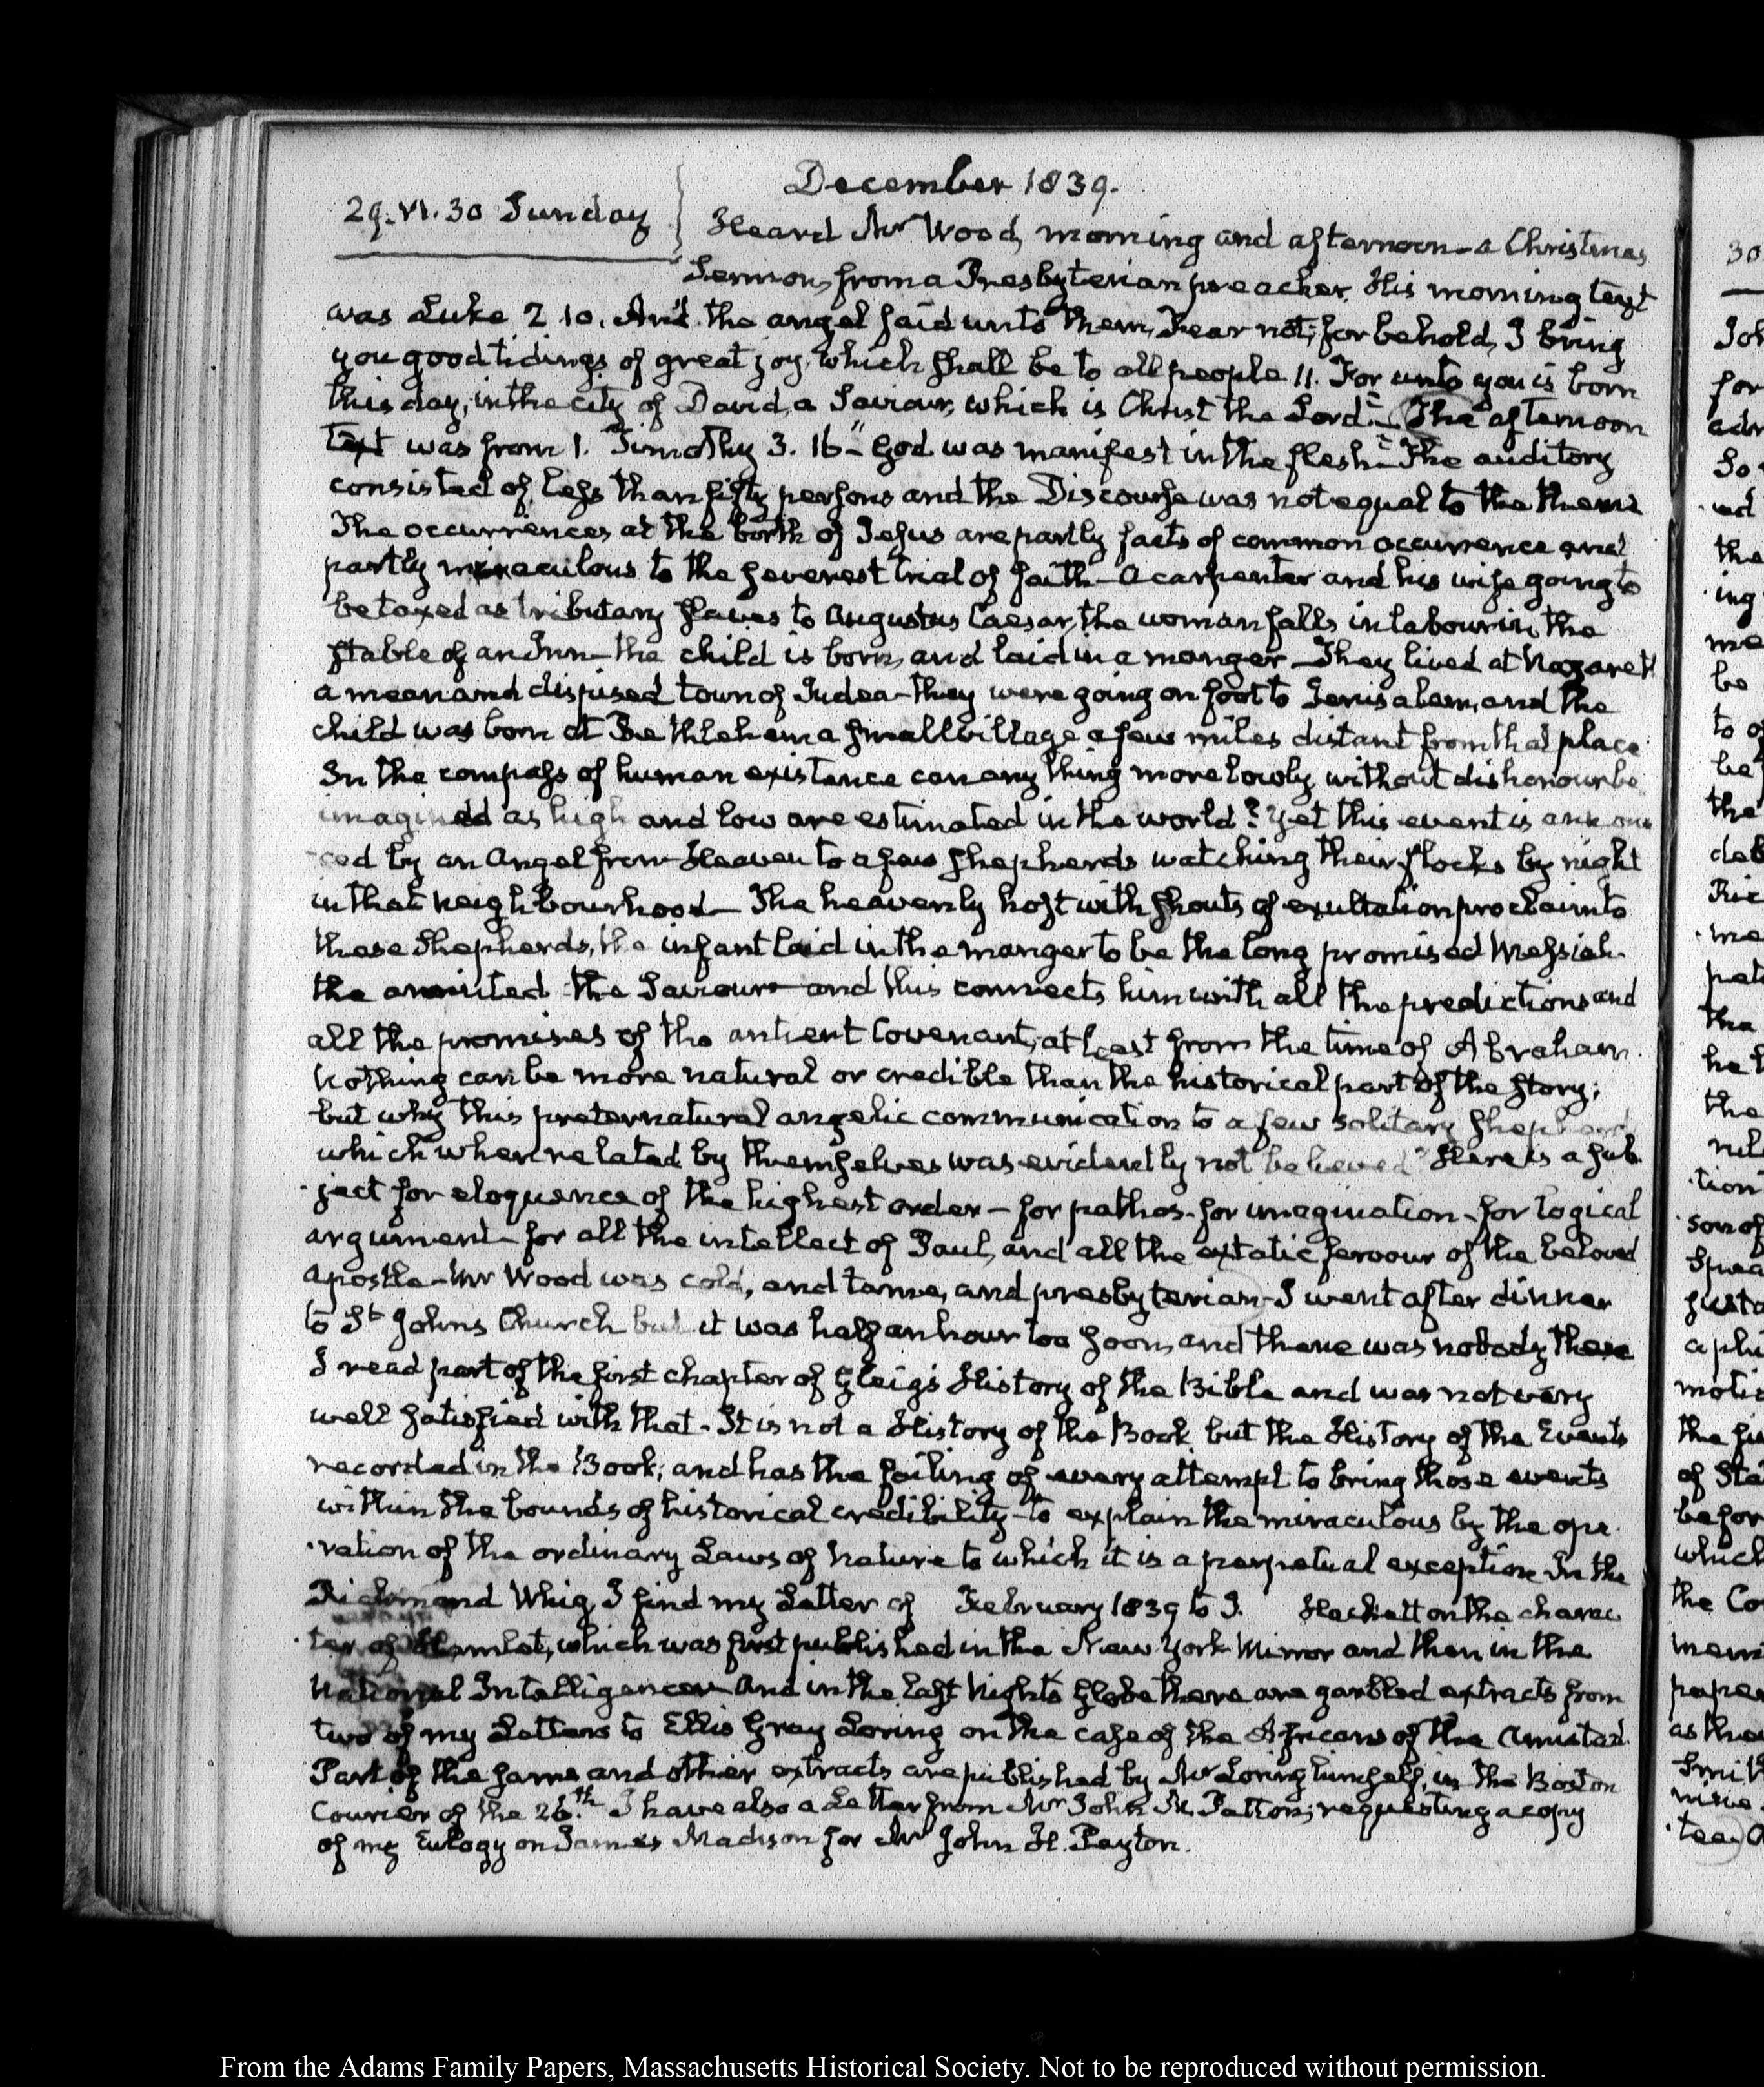 December 1839.
29. VI. 30 Sunday
Heard Mr Wood, morning and afternoon – a Christmas
Sermon, from a Presbyterian preacher. His morning text
was Luke 2 10. And the angel said unto them, Fear not; for behold, I bring
you good tidings of great joy, which shall be to all people 11. For unto you is born
this day, in the city of David, a Saviour, which is Christ the Lord." The afternoon
text was from 1. Timothy 3. 16 "– God was manifest in the flesh – The auditory
consisted of less than fifty persons and the Discourse was not equal to the theme
The occurrences at the birth of Jesus are partly facts of common occurrence and
partly miraculous to the severest trial of faith – A carpenter and his wife going to
be taxed as tributary slaves to Augustus Caesar, the woman falls in labour in the
stable of an Inn – the child is born, and laid in a manger – They lived at Nazareth
a mean and dispised town of Judea – they were going on foot to Jerusalem, and the
child was born at Bethlehem a small village a few miles distant from that place
In the compass of human existence can any thing more lowly, without dishonour be
imagined as high and low are estimated in the world? Yet this event is announ
ced by an Angel from Heaven to a few shepherds watching their flocks by night
in that neighbourhood – The heavenly host with shouts of exultation proclaim to
these Shepherds, the infant laid in the manger to be the long promised Messiah.
the annointed the Saviour – and this connects him with all the predictions and
all the promises of the antient Covenant, at least from the time of Abraham.
Nothing can be more natural or credible than the historical part of the story;
but why this preternatural angelic communication to a few solitary shepherds
which when related by themselves was evidently not believed Here is a sub
ject for eloquence of the highest order – for pathos – for imagination – for logical
argument – for all the intellect of Paul, and all the extatic fervour of the beloved
apostle – Mr Wood was cold, and tame, and presbyterian – I went after dinner
to St Johns Church but it was half an hour too soon, and there was nobody there
I read part of the first chapter of Gleig's History of the Bible and was not very
well satisfied with that. It is not a History of the Book but the History of the Events
recorded in the Book; and has the failing of every attempt to bring those events
within the bounds of historical credibility – to explain the miraculous by the ope
ration of the ordinary Laws of Nature to which it is a perpetual exception In the
Richmond Whig, I find my Letter of February 1839 to J. Hackett on the charac
ter of Hamlet, which was first published in the New York Mirror and then in the
National Intelligencer – And in the last Night's Globe there are garbled extracts from
two of my Letters to Ellis Gray Loring on the case of the Africans of the Amistad.
Part of the same and other extracts are published by Mr Loring himself, in the Boston
Courier of the 26.th I have also a Letter from Mr John M. Patton; requesting a copy
of my Eulogy on James Madison for Mr John H. Peyton.
30
Joh
for
adr
So
ed
the
ing
me
be
to o
be
the
deb
Ric
me
pet
the
he h
the
nit
tion
son of
Spea
justa
a plu
motio
the fu
of Sta
befor
which
the Co
mem
pape
as the
Smith
From the Adams Family Papers, Massachusetts Historical Society. Not to be reproduced without permission.